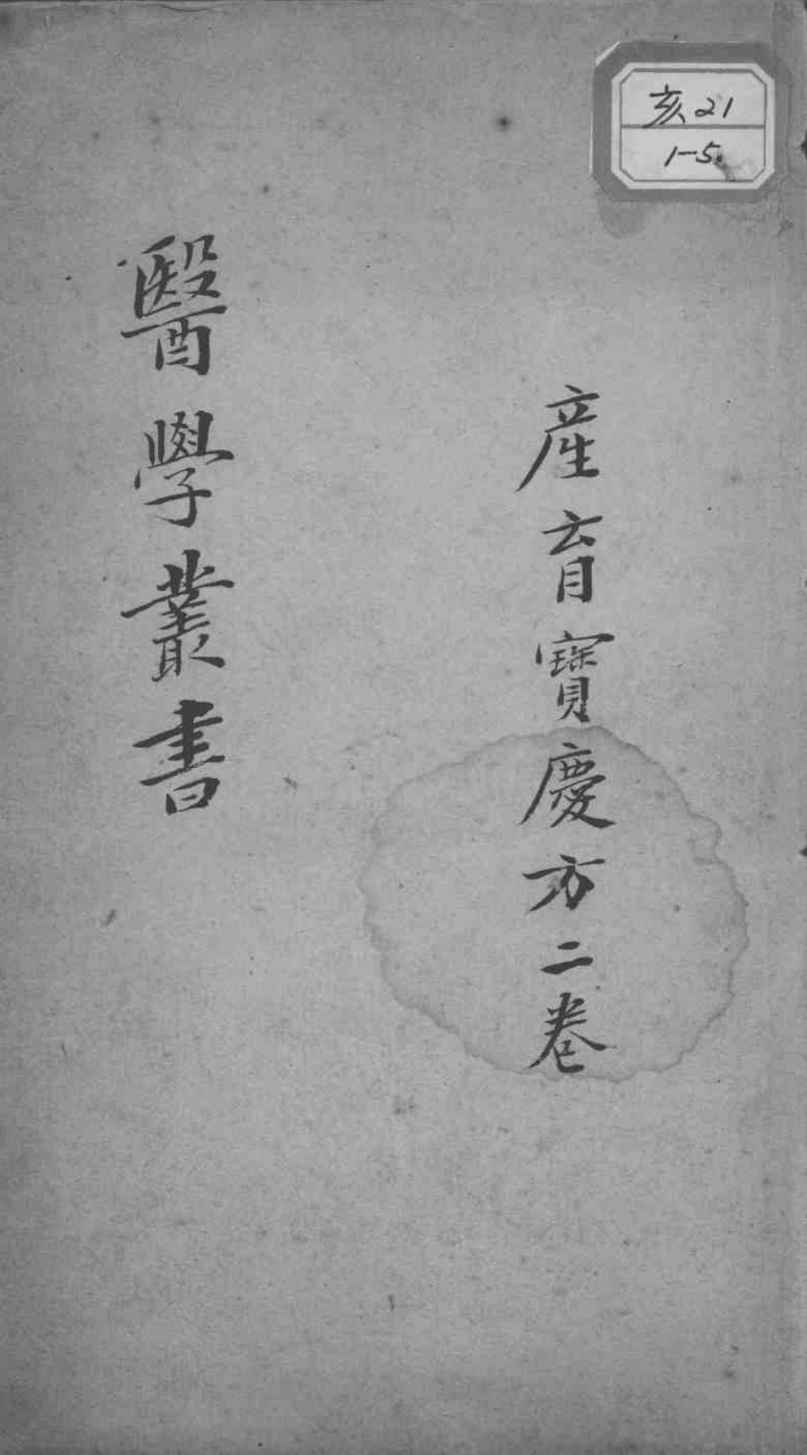 亥21
1-5.
產育寶慶方二卷
醫學叢書